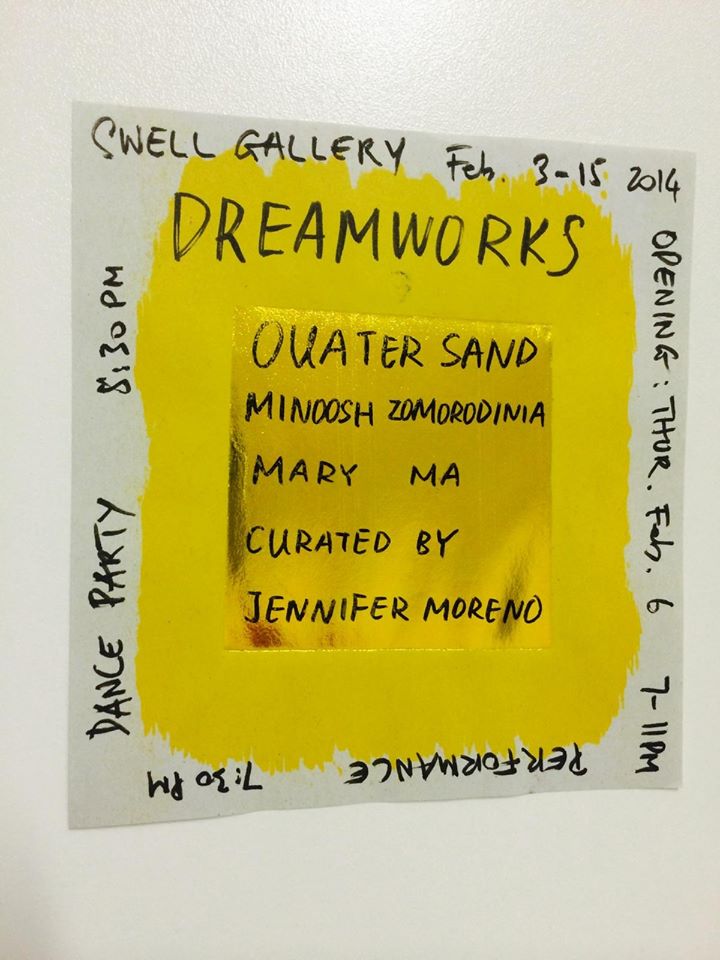 SWELL GALLERY Feb. 3-15 2014
DREAMWORKS
OUATER SAND
MINOOSH ZOMORODINIA
MARY MA
CURATED BY
JENNIFER MORENO
OPENING: THUR. Feb. 6 7-11PM
PERFORMANCE 7:30 PM
DANCE PARTY 8:30 PM